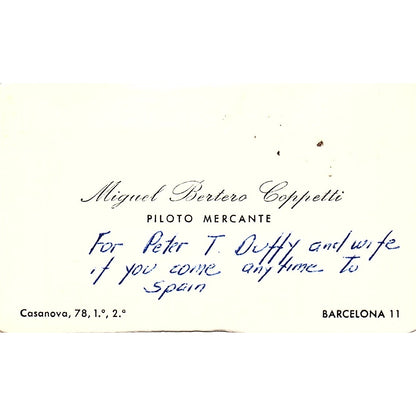 Miguel Bertero Coppetti
PILOTO MERCANTE
For Peter T. Duffy and wife
if you come anytime to
spain
Casanova, 78, 1.º, 2.ª
BARCELONA 11